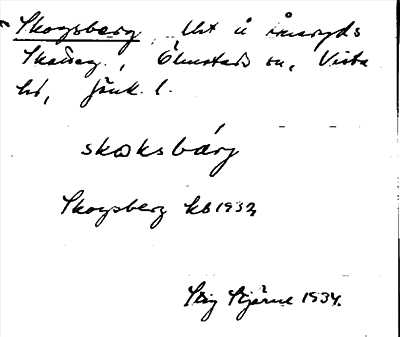 Skogsberg Uct å Åmaryds
Skatteg., Ölmstads sn, Vista
hd, Jönk. l.
skoksbärj
Skogsberg kb 1932
Stig Stjärne 1934.